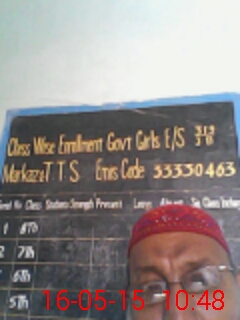 Class Wise Enrollment Govt Girls E/S 313
Markaz TTS Emis Code 33330463
Serial Nr Class Students Strength Present Leave Absent Sig Class Incharge
1 8th
2 7th
6th
5th
16-05-15 10:48